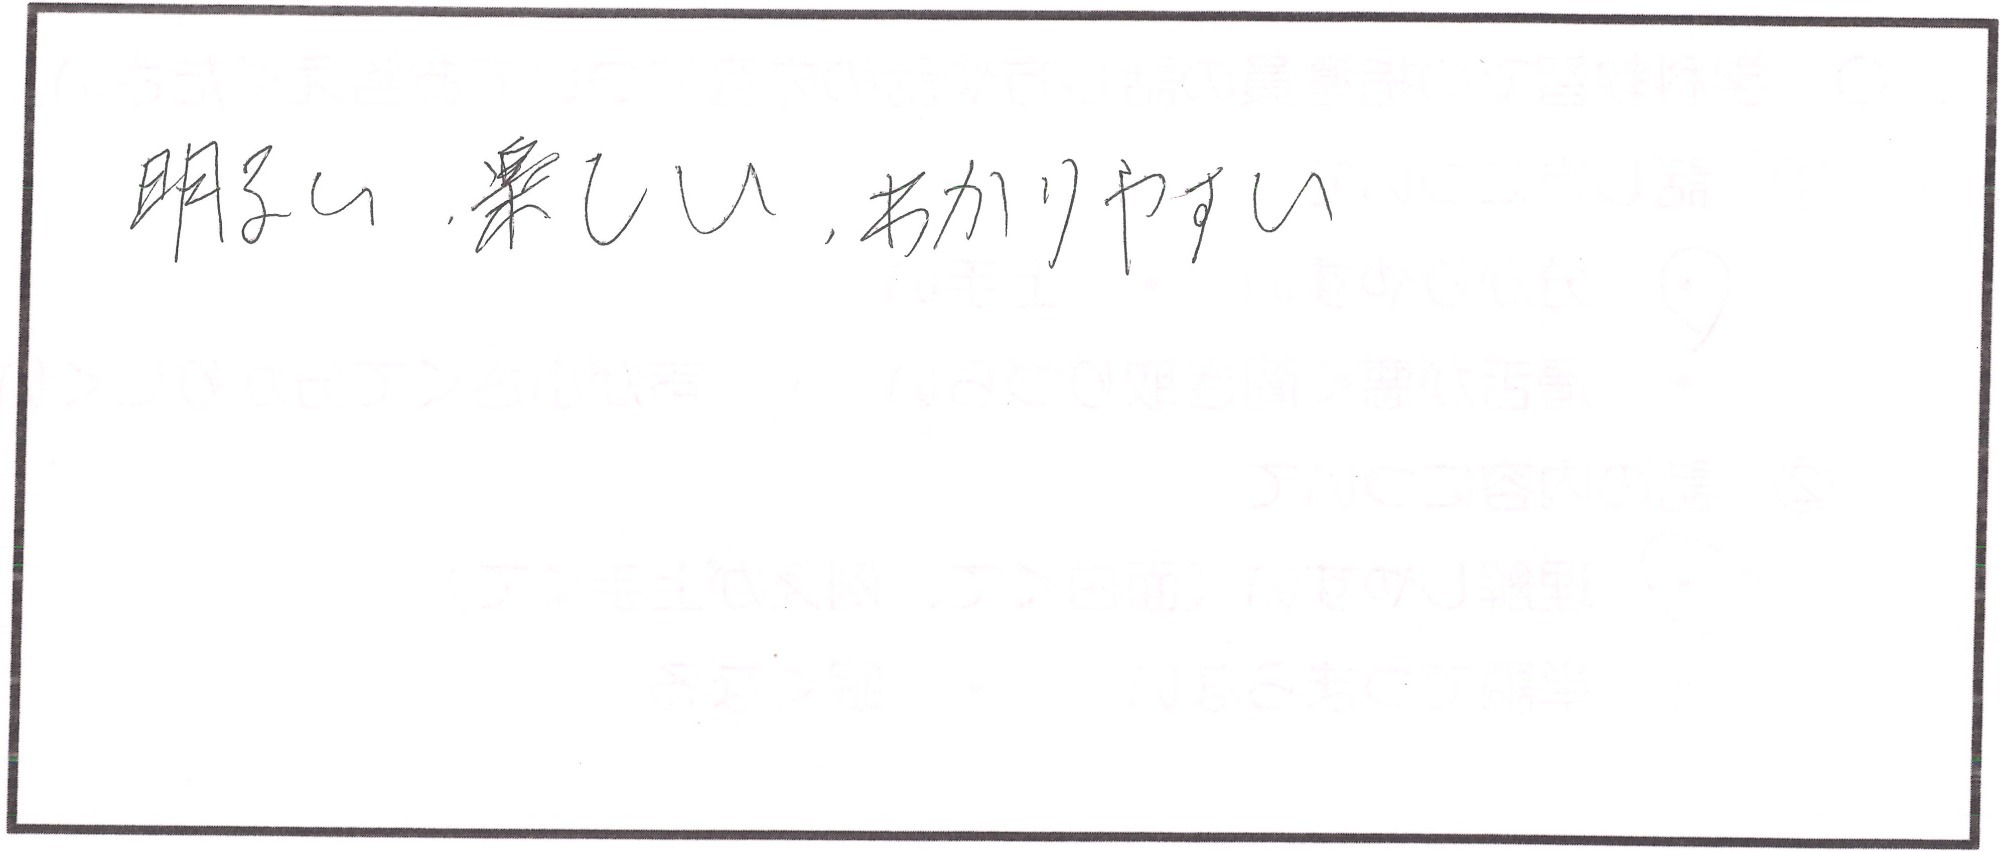 明るい、楽しい、わかりやすい